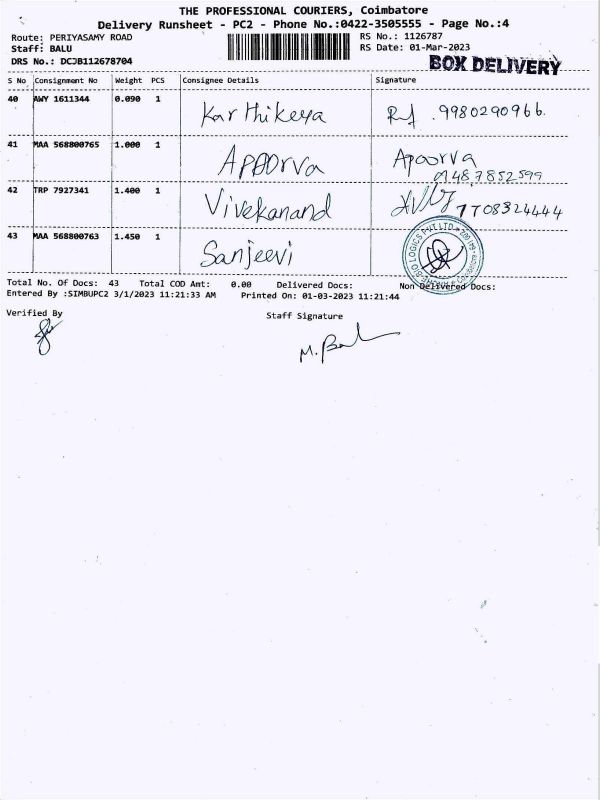 THE PROFESSIONAL COURIERS, Coimbatore
Delivery Runsheet - PC2 - Phone No.:0422-3505555 - Page No.:4
Route: PERIYASAMY ROAD RS No.: 1126787
Staff: BALU RS Date: 01-Mar-2023
DRS No.: DCJB112678704 BOX DELIVERY
S No Consignment No Weight PCS Consignee Details Signature
40 AWY 1611344 0.090 1 Karthikeya 9980290966
41 MAA 568800765 1.000 1 Apoorva Apoorva
01487852599
42 TRP 7927341 1.400 1 Vivekanand 7708324444
43 MAA 568800763 1.450 1 Sanjeevi
Total No. Of Docs: 43 Total COD Amt: 0.00 Delivered Docs: Non Delivered Docs:
Entered By :SIMBUPC2 3/1/2023 11:21:33 AM Printed On: 01-03-2023 11:21:44
Verified By Staff Signature
M. Bal